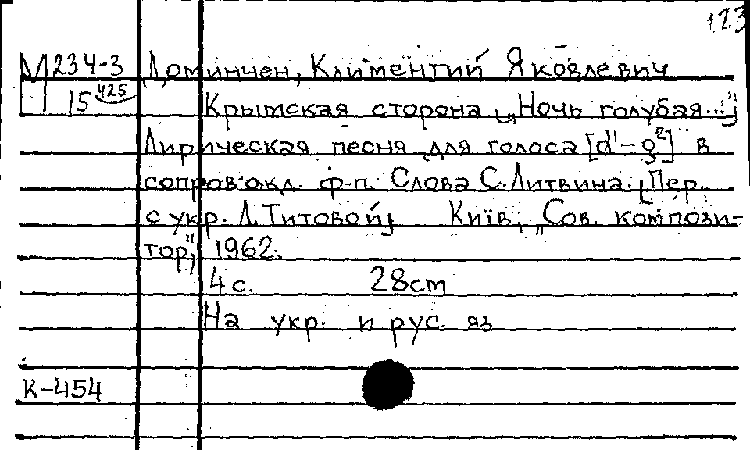 123
М 234-3 Доминчен, Климентий Яковлевич
П 15 425 Крымская сторона [„Ночь голубая..."]
Лирическая песня для голоса [d¹-g²] в
сопровожд. ф-п. Слова С. Литвина. [Пер.
с укр. Л. Титовой] Київ, „Сов. компози-
тор", 1962.
4 с. 28 cm
На укр. и рус. яз
К-454